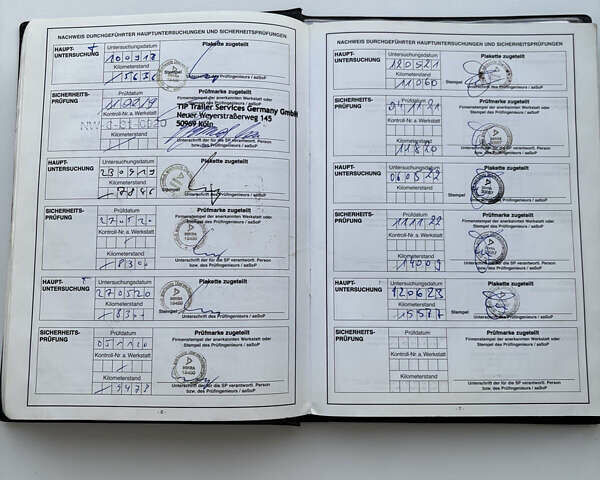 NACHWEIS DURCHGEFÜHRTER HAUPTUNTERSUCHUNGEN UND SICHERHEITSPRÜFUNGEN
HAUPT-
UNTERSUCHUNG
Untersuchungsdatum
Kilometerstand
Plakette zugeteilt
Stempel
Unterschrift des Prüfingenieurs / aaSoP
SICHERHEITS-
PRÜFUNG
Prüfdatum
Kontroll-Nr. a. Werkstatt
Kilometerstand
Prüfmarke zugeteilt
Firmenstempel der anerkannten Werkstatt oder
TP Trailer Services Germany GmbH
Neuer Weyerstraßerweg 145
50969 Köln
bzw. des Prüfingenieurs / aaSoP
HAUPT-
UNTERSUCHUNG
Untersuchungsdatum
230919
Kilometerstand
Plakette zugeteilt
Stempel
Unterschrift des Prüfingenieurs / aaSoP
SICHERHEITS-
PRÜFUNG
Prüfdatum
270520
Kontroll-Nr. a. Werkstatt
Kilometerstand
Prüfmarke zugeteilt
Firmenstempel der anerkannten Werkstatt oder
Stempel des Prüfingenieurs / aaSoP
DEKRA
Unterschrift der für die SP verantwortl. Person
bzw. des Prüfingenieurs / aaSoP
HAUPT-
UNTERSUCHUNG
Untersuchungsdatum
270520
Kilometerstand
Plakette zugeteilt
DEKRA
Stempel
Unterschrift des Prüfingenieurs / aaSoP
SICHERHEITS-
PRÜFUNG
Prüfdatum
Kontroll-Nr. a. Werkstatt
Kilometerstand
9478
Prüfmarke zugeteilt
Firmenstempel der anerkannten Werkstatt oder
Stempel des Prüfingenieurs / aaSoP
DEKRA
Unterschrift der für die SP verantwortl. Person
bzw. des Prüfingenieurs / aaSoP
- 6 -
NACHWEIS DURCHGEFÜHRTER HAUPTUNTERSUCHUNGEN UND SICHERHEITSPRÜFUNGEN
HAUPT-
UNTERSUCHUNG
Untersuchungsdatum
120521
Kilometerstand
11060
Plakette zugeteilt
Stempel
Unterschrift des Prüfingenieurs / aaSoP
SICHERHEITS-
PRÜFUNG
Prüfdatum
Kontroll-Nr. a. Werkstatt
Kilometerstand
11820
Prüfmarke zugeteilt
Firmenstempel der anerkannten Werkstatt oder
Stempel des Prüfingenieurs / aaSoP
Unterschrift der für die SP verantwortl. Person
bzw. des Prüfingenieurs / aaSoP
HAUPT-
UNTERSUCHUNG
Untersuchungsdatum
060522
Kilometerstand
Plakette zugeteilt
Stempel
Unterschrift des Prüfingenieurs / aaSoP
SICHERHEITS-
PRÜFUNG
Prüfdatum
111122
Kontroll-Nr. a. Werkstatt
Kilometerstand
14009
Prüfmarke zugeteilt
Firmenstempel der anerkannten Werkstatt oder
Stempel des Prüfingenieurs / aaSoP
Unterschrift der für die SP verantwortl. Person
bzw. des Prüfingenieurs / aaSoP
HAUPT-
UNTERSUCHUNG
Untersuchungsdatum
120623
Kilometerstand
15577
Plakette zugeteilt
Stempel
Unterschrift des Prüfingenieurs / aaSoP
SICHERHEITS-
PRÜFUNG
Prüfdatum
Kontroll-Nr. a. Werkstatt
Kilometerstand
Prüfmarke zugeteilt
Firmenstempel der anerkannten Werkstatt oder
Stempel des Prüfingenieurs / aaSoP
Unterschrift der für die SP verantwortl. Person
bzw. des Prüfingenieurs / aaSoP
- 7 -